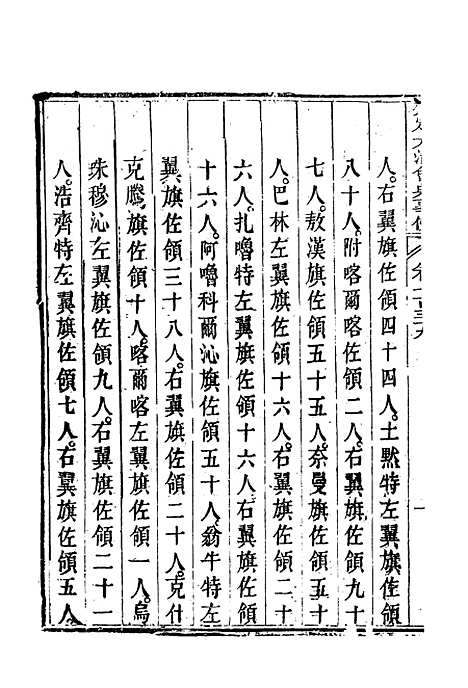 人。右翼旗佐領四十四人。土默特左翼旗佐領
八十人。附喀爾喀佐領二人。右翼旗佐領九十
七人。敖漢旗佐領五十五人。奈曼旗佐領五十
人。巴林左翼旗佐領十六人。右翼旗佐領二十
六人。扎嚕特左翼旗佐領十六人。右翼旗佐領
十六人。阿嚕科爾沁旗佐領五十人。翁牛特左
翼旗佐領三十八人。右翼旗佐領二十人。克什
克騰旗佐領十人。喀爾喀左翼旗佐領一人。烏
珠穆沁左翼旗佐領九人。右翼旗佐領二十一
人。浩齊特左翼旗佐領七人。右翼旗佐領五人。